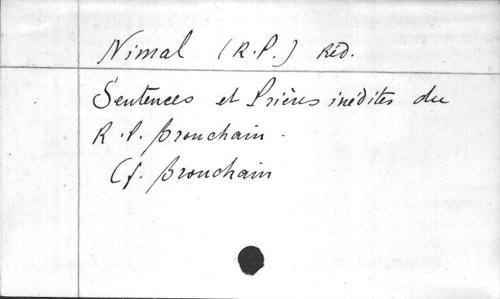 Nimal (R.P.) Réd.
Sentences et Prières inédites du
R.P. Bronchain.
Cf. Bronchain